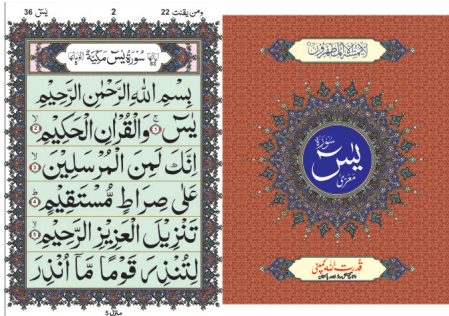 یٰسٓ 36
2
ومن یقنت 22
سُوْرَۃُ یٰسٓ مَکِّیَّۃٌ
بِسْمِ اللّٰهِ الرَّحْمٰنِ الرَّحِیْمِ
یٰسٓ ۚ ﴿1﴾ وَالْقُرْاٰنِ الْحَكِیْمِ ﴿2﴾
اِنَّكَ لَمِنَ الْمُرْسَلِیْنَ ﴿3﴾
عَلٰی صِرَاطٍ مُّسْتَقِیْمٍ ﴿4﴾
تَنْزِیْلَ الْعَزِیْزِ الرَّحِیْمِ ﴿5﴾
لِتُنْذِرَ قَوْمًا مَّاۤ اُنْذِرَ
منزل 5
سورۃ
یٰسٓ
معرّٰی
قدرت اللہ کمپنی